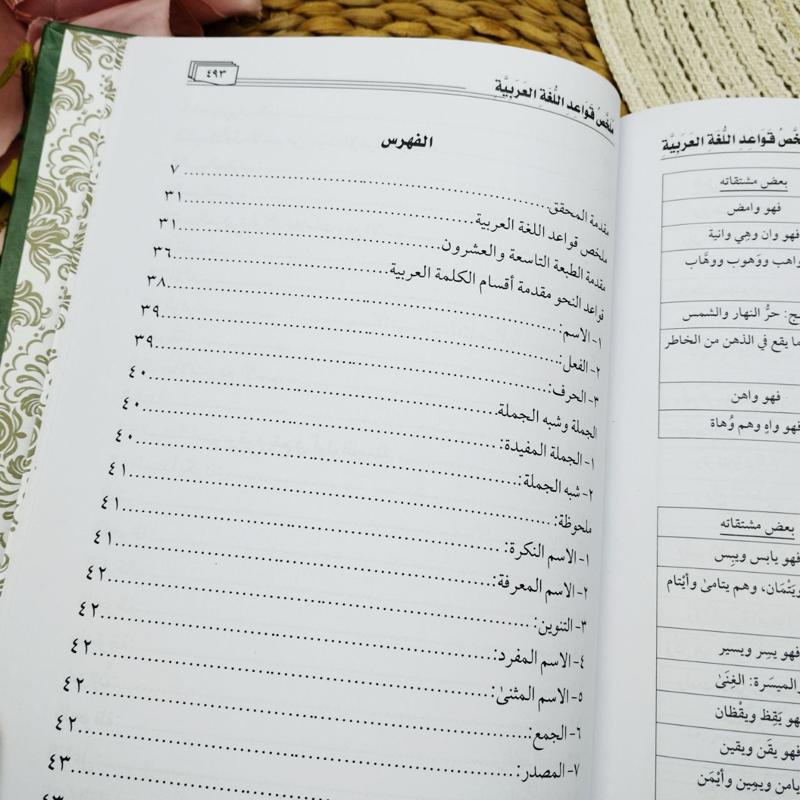 ٤٩٣
ملخص قواعد اللغة العربية
الفهرس
مقدمة المحقق ... ٧
ملخص قواعد اللغة العربية ... ٣١
مقدمة الطبعة التاسعة والعشرون ... ٣١
قواعد النحو مقدمة أقسام الكلمة العربية ... ٣٦
١- الاسم: ... ٣٨
٢- الفعل: ... ٣٩
٣- الحرف: ... ٣٩
الجملة وشبه الجملة ... ٤٠
١- الجملة المفيدة: ... ٤٠
٢- شبه الجملة: ... ٤٠
ملحوظة: ... ٤١
١- الاسم النكرة: ... ٤١
٢- الاسم المعرفة: ... ٤١
٣- التنوين: ... ٤٢
٤- الاسم المفرد: ... ٤٢
٥- الاسم المثنىٰ: ... ٤٢
٦- الجمع: ... ٤٢
٧- المصدر: ... ٤٢
٤٣
قواعد اللغة العربية
بعض مشتقاته
فهو وامض
فهو وان وهي وانية
واهب ووَهوب ووهَّاب
حرُّ النهار والشمس
ما يقع في الذهن من الخاطر
فهو واهن
فهو واهٍ وهم وُهاة
بعض مشتقاته
فهو يابس ويبِس
ويَتْمَان، وهم يتامىٰ وأيْتام
فهو يسِر ويسير
الميسَرة: الغِنَىٰ
فهو يَقِظ ويقْظان
فهو يقَن ويقين
يامن ويمِين وأيْمَن